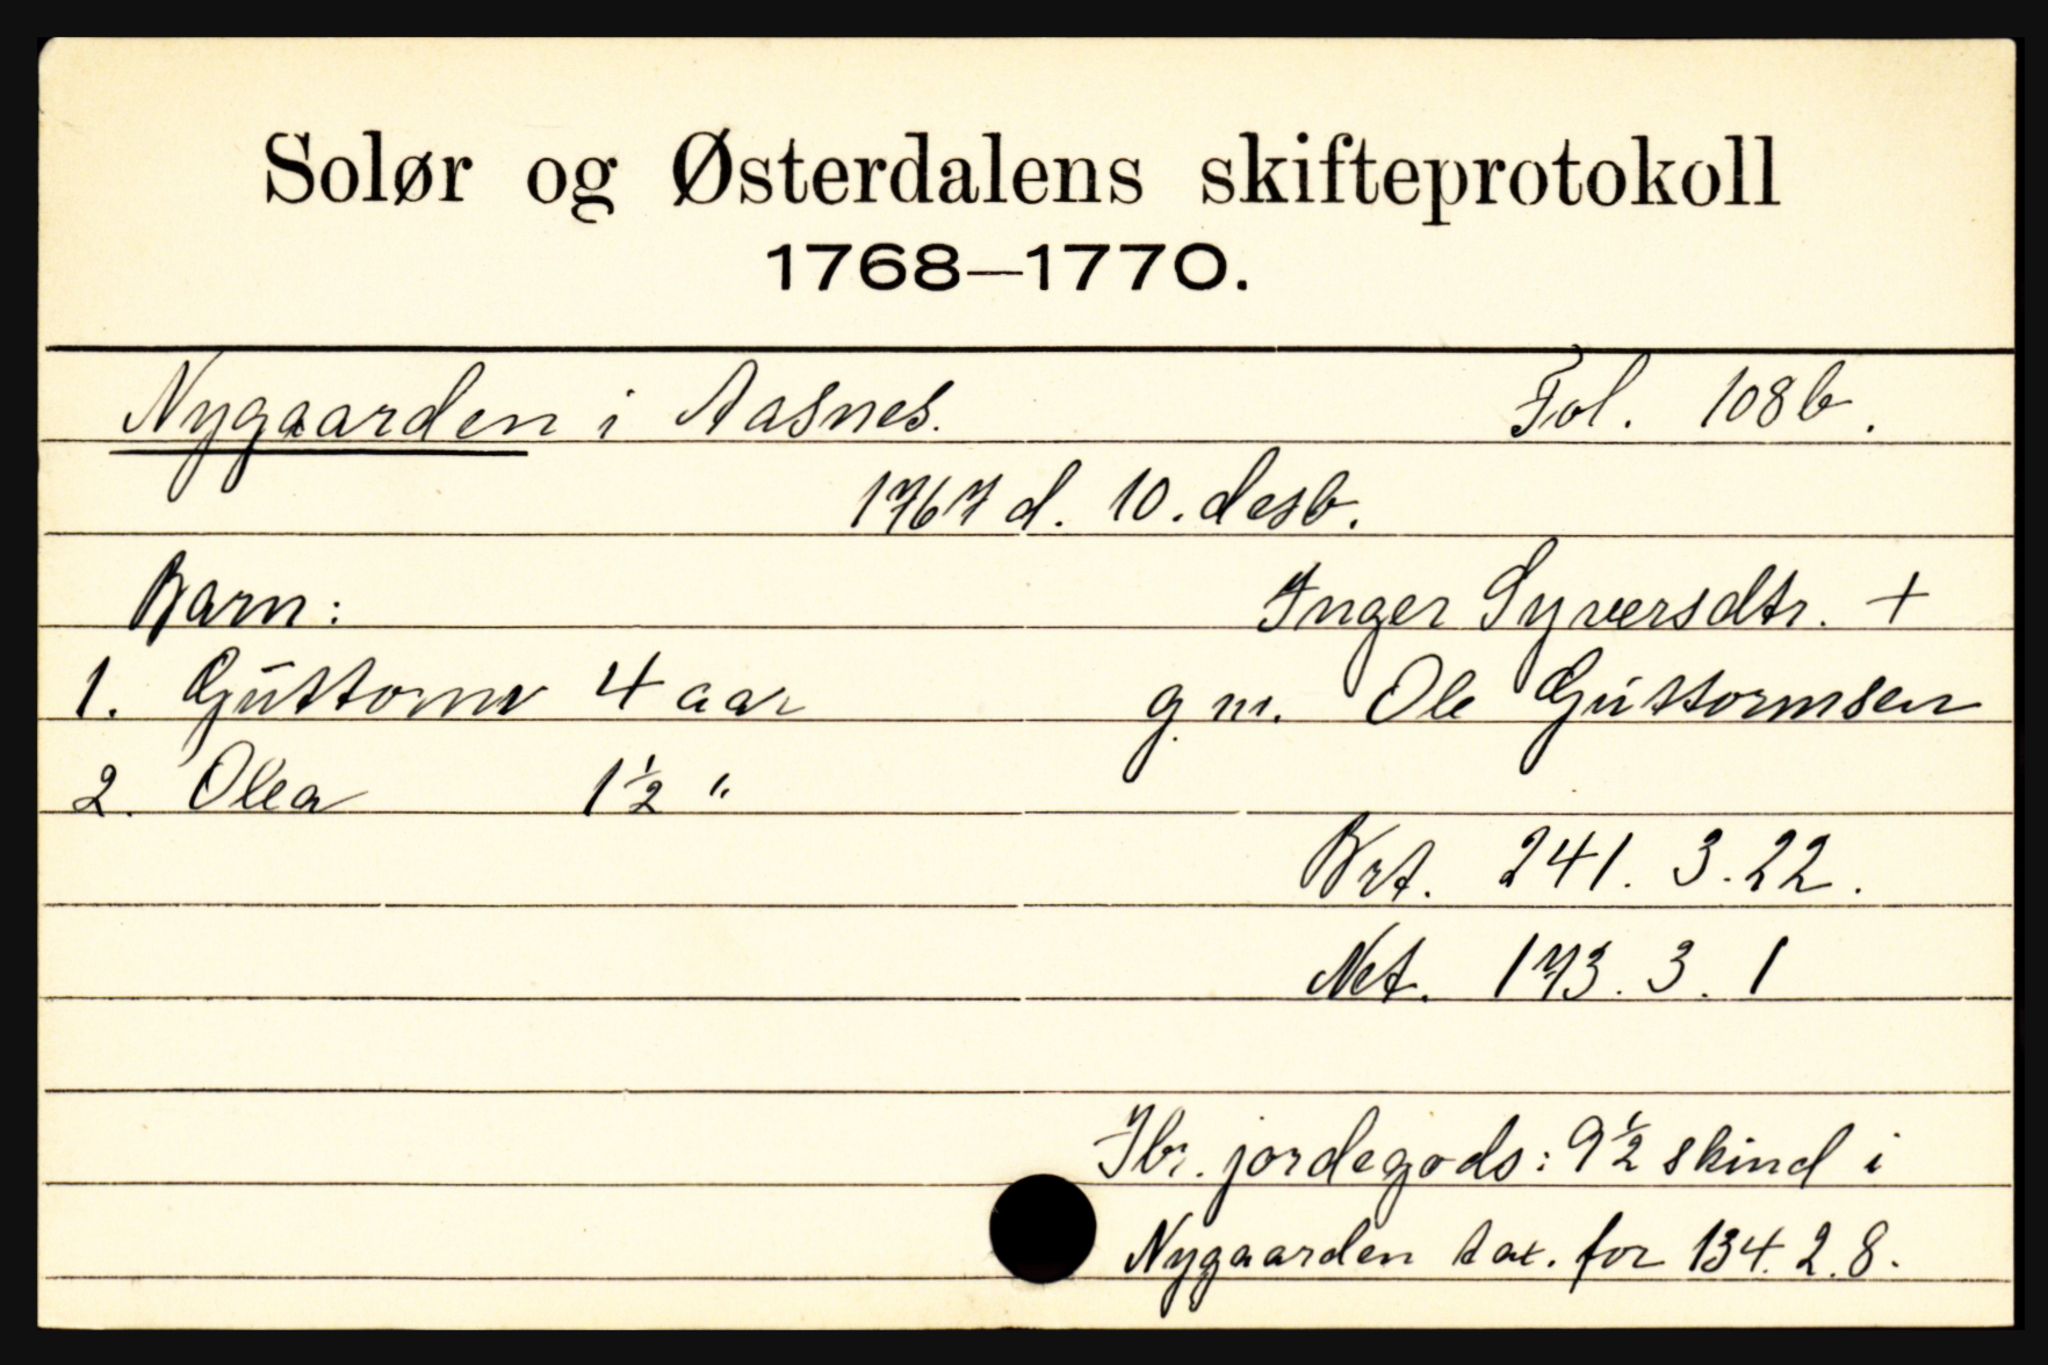 Solør og Østerdalens skifteprotokoll
1768—1770.
Nygaarden i Aasnes. Fol. 108b.
1767 d. 10. desb.
Barn: Inger Syversdtr. +
1. Gúttorm 4 aar g. m. Ole Gúttormsen
2. Olea 1½ "
Brt. 241. 3. 22.
Net. 173. 3. 1
Ibr. jordegods: 9½ skind i
Nygaarden tax. for 134. 2. 8.